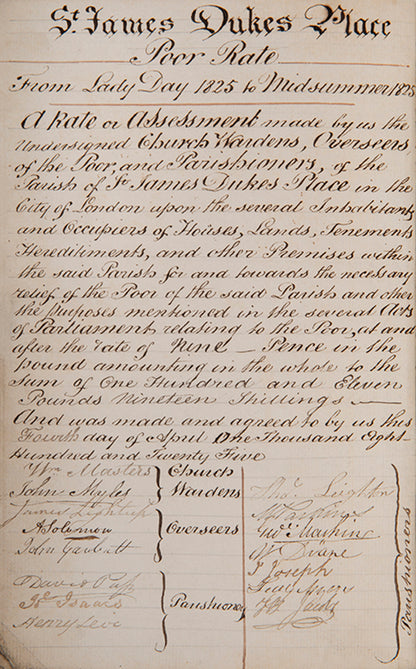 St. James Dukes Place
Poor Rate
From Lady Day 1825 to Midsummer 1825
A Rate or Assessment made by us the
Undersigned Church Wardens, Overseers
of the Poor, and Parishioners, of the
Parish of St. James Dukes Place in the
City of London upon the several Inhabitants
and Occupiers of Houses, Lands, Tenements
Hereditiments, and other Premises within
the said Parish for and towards the necessary
relief of the Poor of the said Parish and other
the Purposes mentioned in the several Acts
of Parliament relating to the Poor, at and
after the rate of Nine Pence in the
Pound amounting in the whole to the
Sum of One Hundred and Eleven
Pounds Nineteen Shillings
And was made and agreed to by us this
Fourth day of April One Thousand Eight
Hundred and Twenty Five
Wm Masters
John Myles
Church
Wardens
James
A Solomon
John Garbutt
Overseers
David
Isaacs
Henry Levi
Parishioners
Thos. Leighton
Geo.
Duane
J Joseph
Jacobs
Parishioners